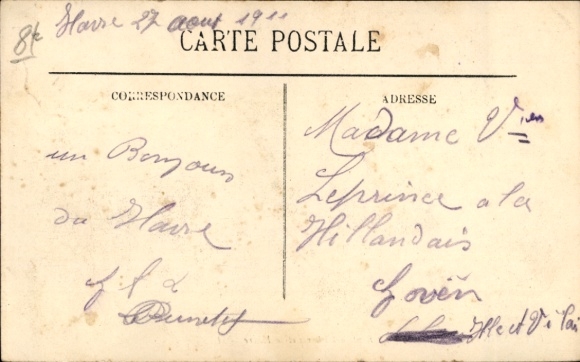 Havre 27 aout 1911
8k
CARTE POSTALE
CORRESPONDANCE
un Bonjour
du Havre
ADRESSE
Madame Vve
Leprince a la
Hillandais
Goven
Ille et Vilai